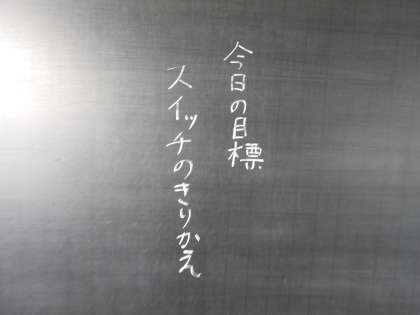 今日の目標
スイッチのきりかえ